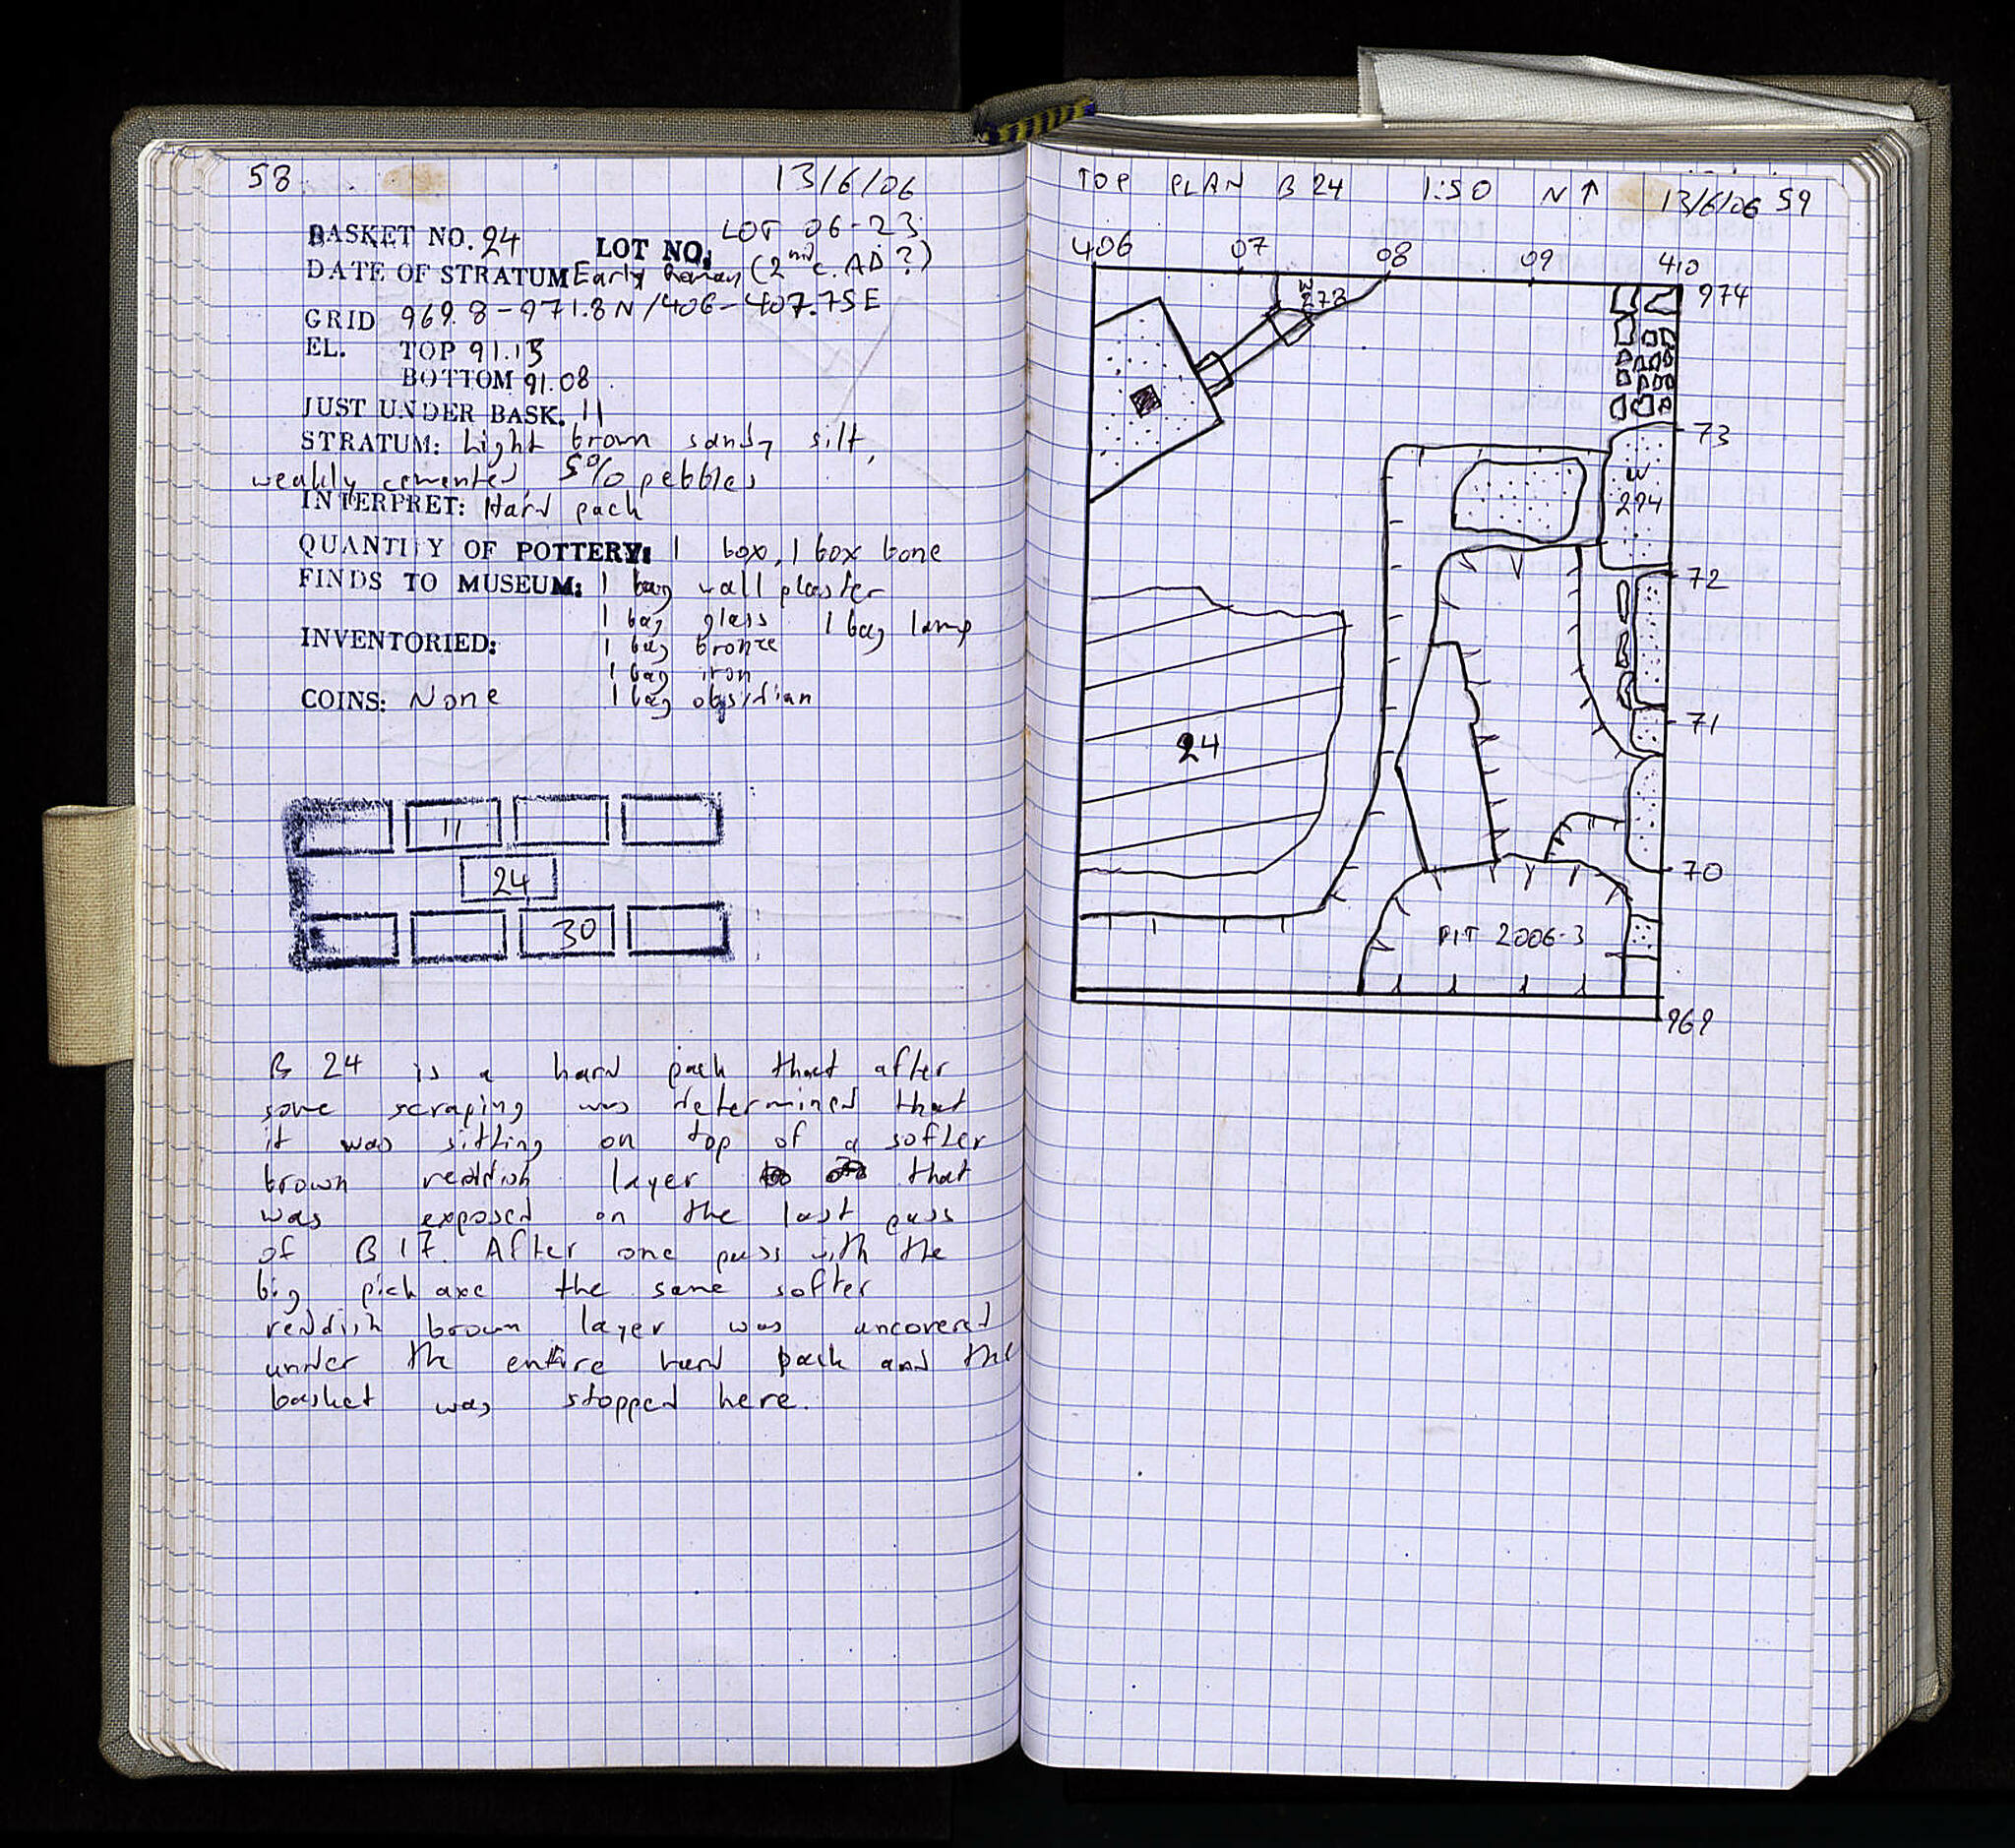 58 13/6/06
BASKET NO. 24 LOT NO. LOT 06-23
DATE OF STRATUM Early Roman (2nd c. AD?)
GRID 969.8-971.8N/406-407.75E
EL. TOP 91.13
BOTTOM 91.08
JUST UNDER BASK. 11
STRATUM: Light brown sandy silt,
weakly cemented, 5% pebbles
INTERPRET: Hard pack
QUANTITY OF POTTERY: 1 box, 1 box bone
FINDS TO MUSEUM: 1 bag wall plaster
1 bag glass 1 bag lamp
INVENTORIED: 1 bag bronze
1 bag iron
COINS: None 1 bag obsidian
11
24
30
B 24 is a hard pack that after
some scraping was determined that
it was sitting on top of a softer
brown reddish layer that
was exposed on the last pass
of B 17. After one pass with the
big pick axe the same softer
reddish brown layer was uncovered
under the entire hard pack and the
basket was stopped here.
TOP PLAN B 24 1:50 N↑ 13/6/06 59
406 07 08 09 410
974
W
273
73
W
294
72
71
24
70
PIT 2006-3
969